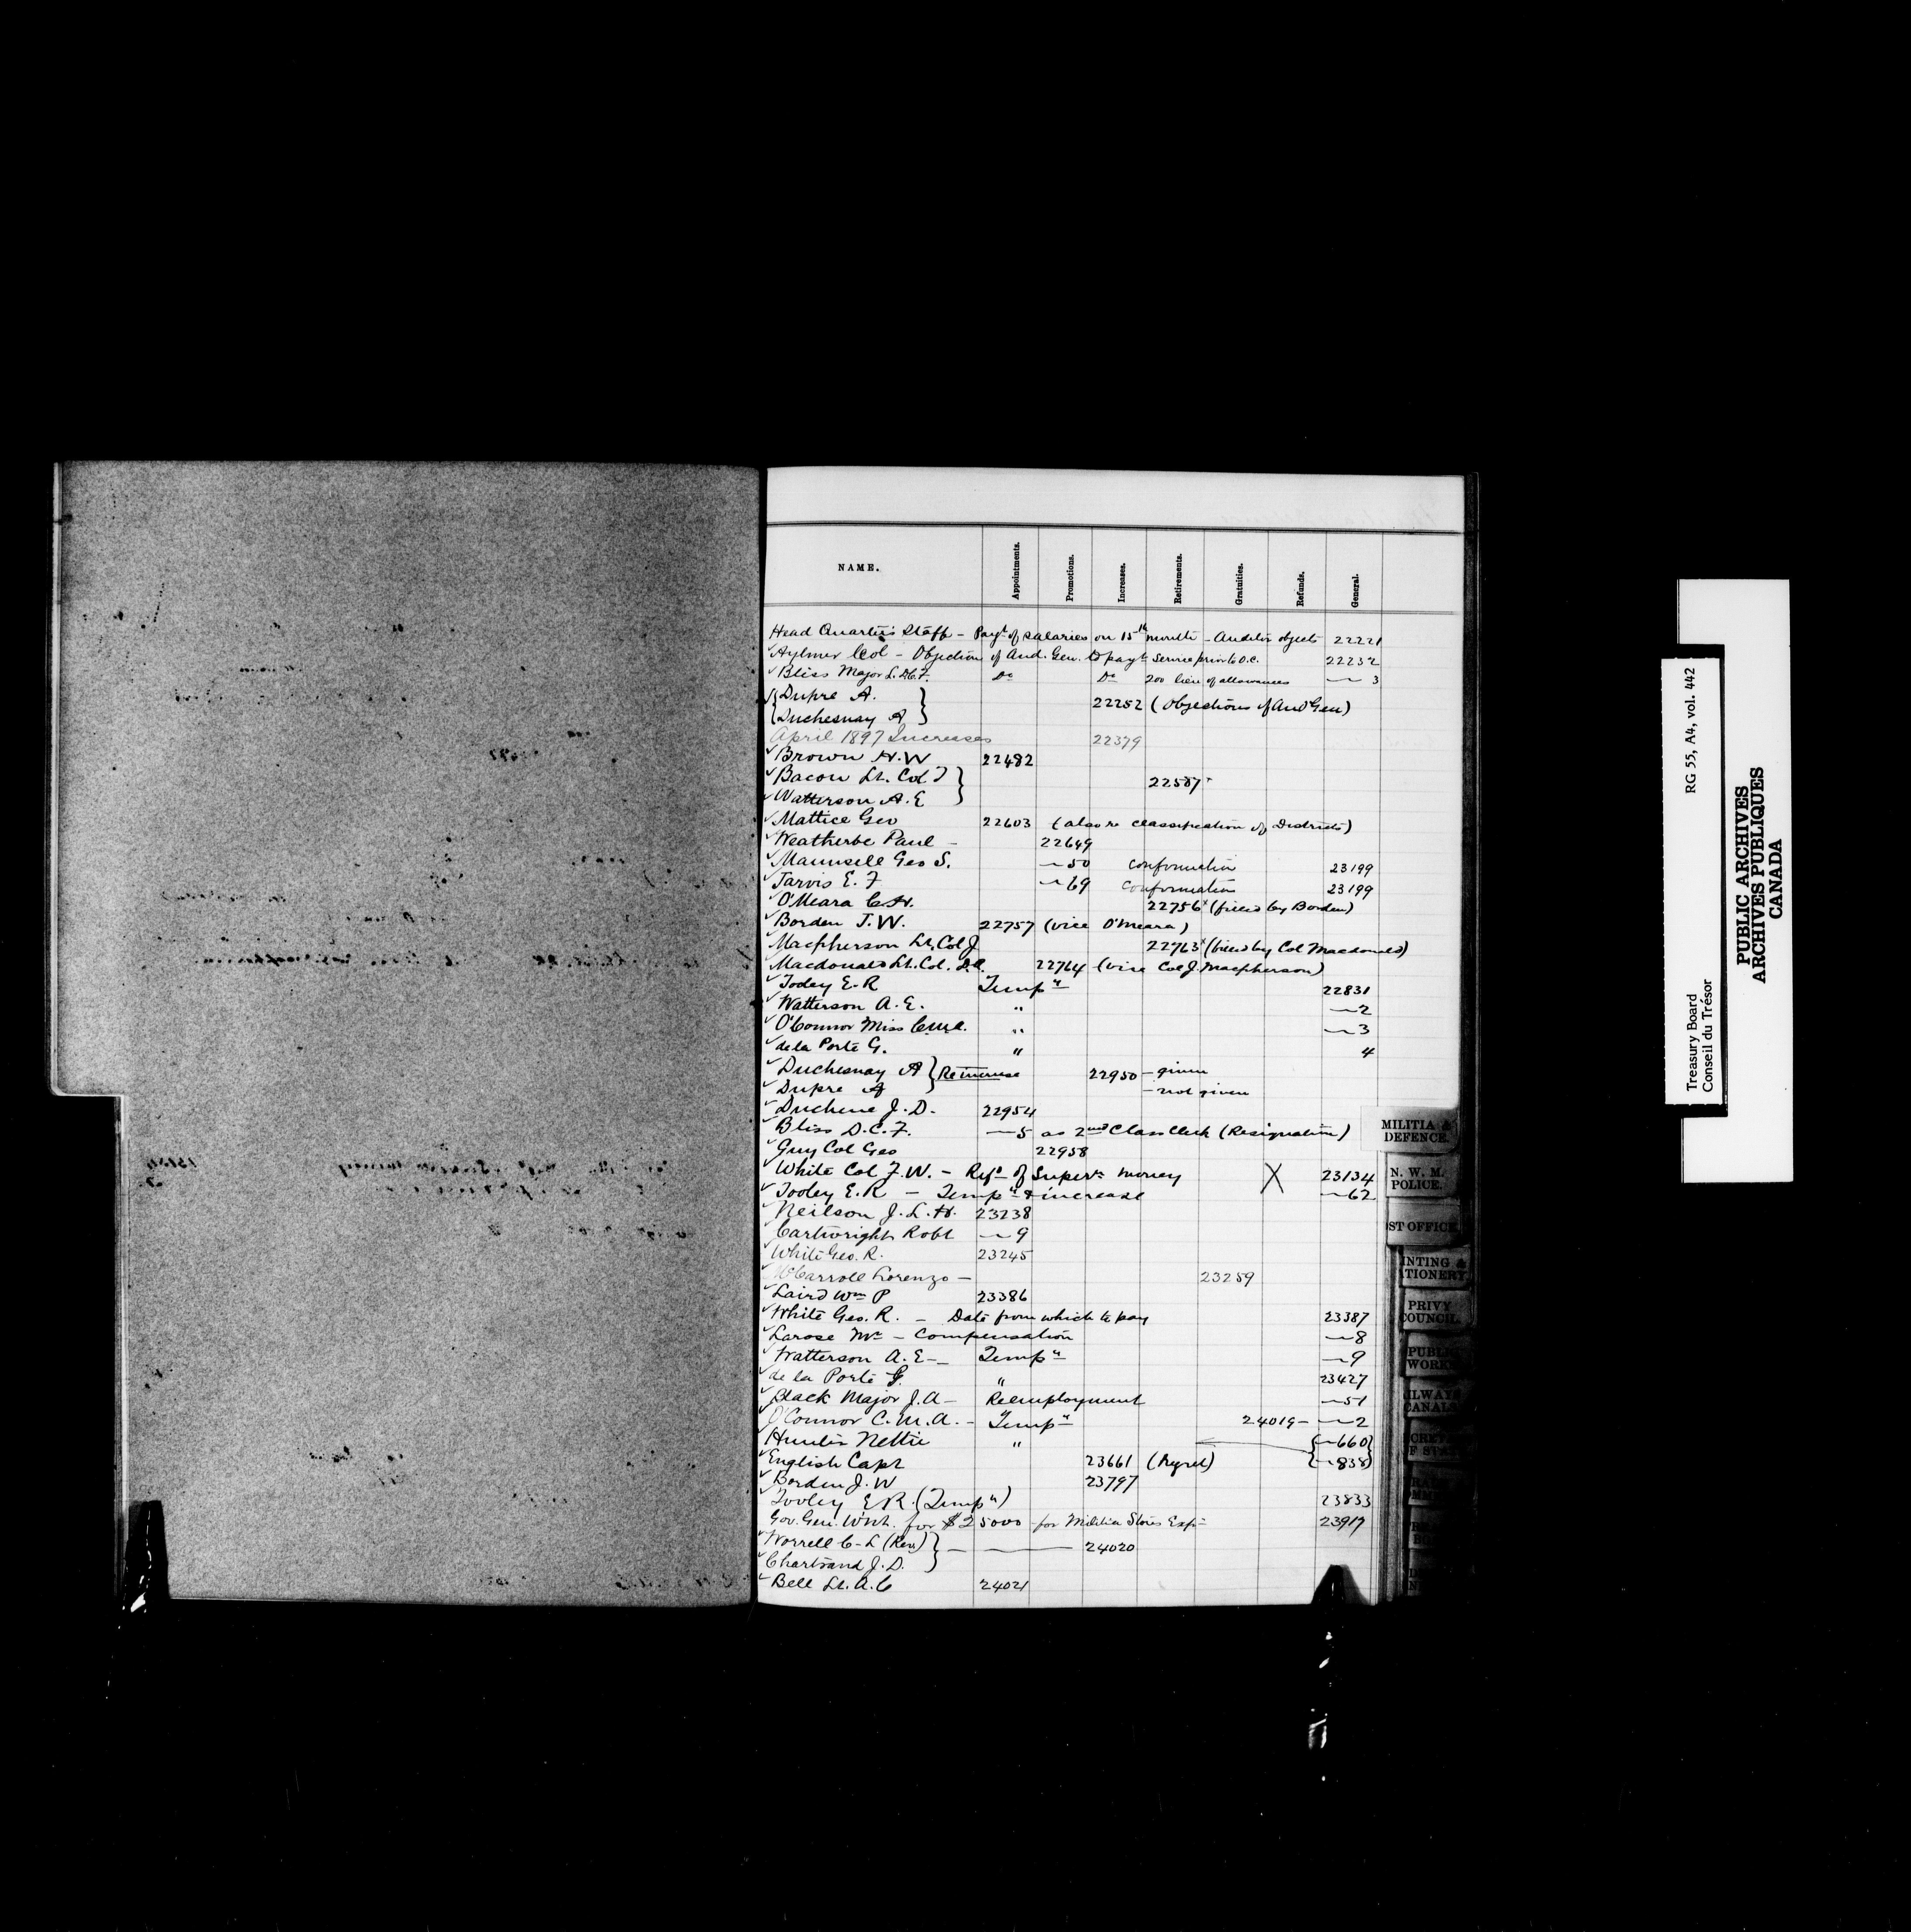 NAME. Appointments. Promotions. Increases. Retirements. Gratuities. Refunds. General.
Head Quarters Staff - Payt of salaries on 15th month - Auditor objects 22221
Aylmer Col - Objection of Aud. Gen. to payt service prior to O.C. 22232
Bliss Major L. D.C.F. Do Do 200 lieu of allowances — 3
{Dupre A. }
{Duchesnay A } 22252 (Objections of Aud Gen)
April 1897 Increases 22379
Brown H.W 22482
Bacon Lt. Col T } 22587
Watterson A.E }
Mattice Geo 22603 (also re classification of Districts)
Weatherbe Paul - 22649
Maunsell Geo S. — 50 confirmation 23199
Jarvis E. F — 69 confirmation 23199
O'Meara C.H. 22756x (filled by Borden)
Borden J.W. 22757 (vice O'Meara)
Macpherson Lt. Col J 22763x (filled by Col Macdonald)
Macdonald Lt. Col. D.A. 22764 (vice Col J. Macpherson)
Tooley E.R Temp'y 22831
Watterson A.E. " — 2
O'Connor Miss C.M.A. " — 3
de la Porte G. " 4
Duchesnay A } Re increase 22950 - given
Dupre A } - not given
Duchene J.D. 22954
Bliss D.C.F. — 5 as 2nd Class Clerk (Resignation)
Guy Col Geo 22958
White Col F.W. - Refd of Supern money X 23134
Tooley E.R - Temp'y & increase — 62
Neilson J.L.H. 23238
Cartwright Robt — 9
White Geo. R. 23245
McCarroll Lorenzo - 23259
Laird Wm P 23386
White Geo. R. - Date from which to pay 23387
Larose Mr - Compensation — 8
Watterson A.E - Temp'y — 9
de la Porte G. " 23427
Black Major J.A - Reemployment — 51
O'Connor C.M.A. - Temp'y 24019 - — 2
Hunter Nettie " {— 660}
English Capt 23661 (Regret) {— 838}
Borden J.W 23797
Tooley E.R. (Temp'y) 23833
Gov. Gen. Wnt. for $25000 for Militia Stores Exp 23917
Worrell C-L (Rev) } - — 24020
Chartrand J.D. }
Bell Lt. A.C 24021
MILITIA & DEFENCE.
N. W. M. POLICE.
ST OFFICE
INTING & ATIONERY
PRIVY COUNCIL.
PUBLIC WORK
ILWAYS CANALS
CRET F STA
Treasury Board RG 55, A4, vol. 442
Conseil du Trésor
PUBLIC ARCHIVES
ARCHIVES PUBLIQUES
CANADA